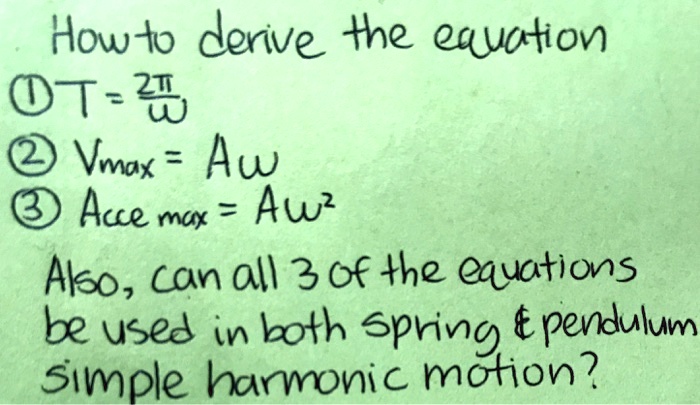 How to derive the equation
① T = 2π/ω
② Vmax = Aω
③ Acce max = Aω²
Also, can all 3 of the equations
be used in both spring & pendulum
simple harmonic motion?